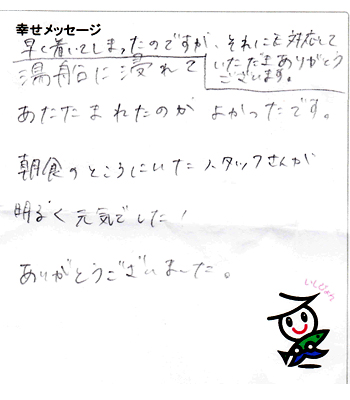 幸せメッセージ
早く着いてしまったのですが、それにも対応して
いただきありがとう
ございます。
湯船に浸れて
あたたまれたのが よかったです。
朝食のところにいたスタッフさんが
明るく元気でした！
ありがとうございました。